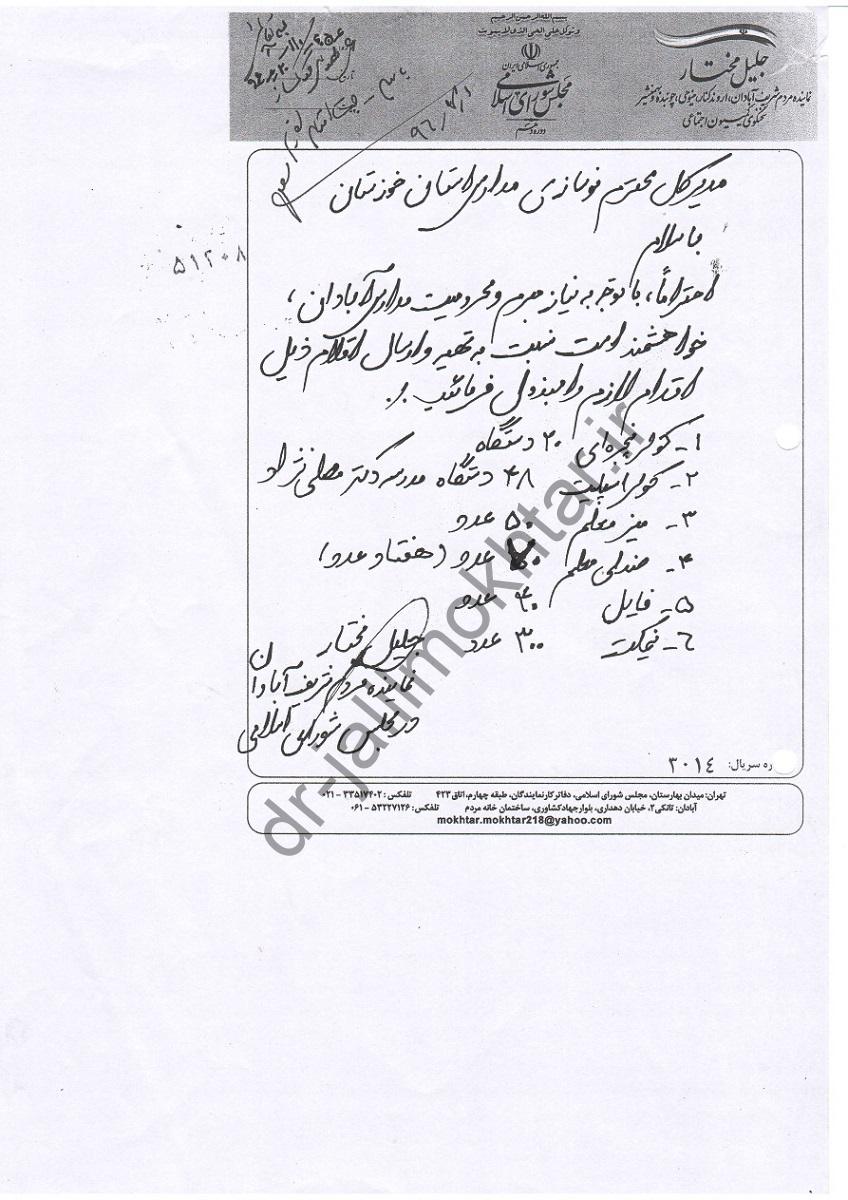 بسم الله الرحمن الرحیم
و توکل علی الحی الذی لا یموت
جمهوری اسلامی ایران
مجلس شورای اسلامی
جلیل مختار
نماینده مردم شریف آبادان، اروندکنار، مینوحی، چوئبده و بهمنشیر
سخنگوی کمیسیون اجتماعی
۹۶/۳/۱
مدیر کل محترم نوسازی مدارس استان خوزستان
با سلام
۵۱۲۰۸
احتراماً، با توجه به نیاز مبرم و محرومیت مدارس آبادان،
خواهشمند است نسبت به تهیه و ارسال اقلام ذیل
اقدام لازم را مبذول فرمائید.
۱- کولر پنجره‌ای ۲۰ دستگاه
۲- کولر اسپلیت ۴۸ دستگاه مدرسه دکتر مصلی نژاد
۳- میز معلم ۵۰ عدد
۴- صندلی معلم ۷۰ عدد (هفتاد عدد)
۵- فایل ۴۰ عدد
۶- نیمکت ۳۰۰ عدد
جلیل مختار
نماینده مردم شریف آبادان
در مجلس شورای اسلامی
ره سریال: ۳۰۱۴
تهران: میدان بهارستان، مجلس شورای اسلامی، دفاتر کار نمایندگان، طبقه چهارم، اتاق ۴۲۳ تلفکس: ۳۳۵۱۷۴۰۲ - ۰۲۱
آبادان: تانکی۲، خیابان دهداری، بلوار جهاد کشاورزی، ساختمان خانه مردم تلفکس: ۵۳۲۲۷۱۲۶ - ۰۶۱
mokhtar.mokhtar218@yahoo.com
dr-jalilmokhtar.ir